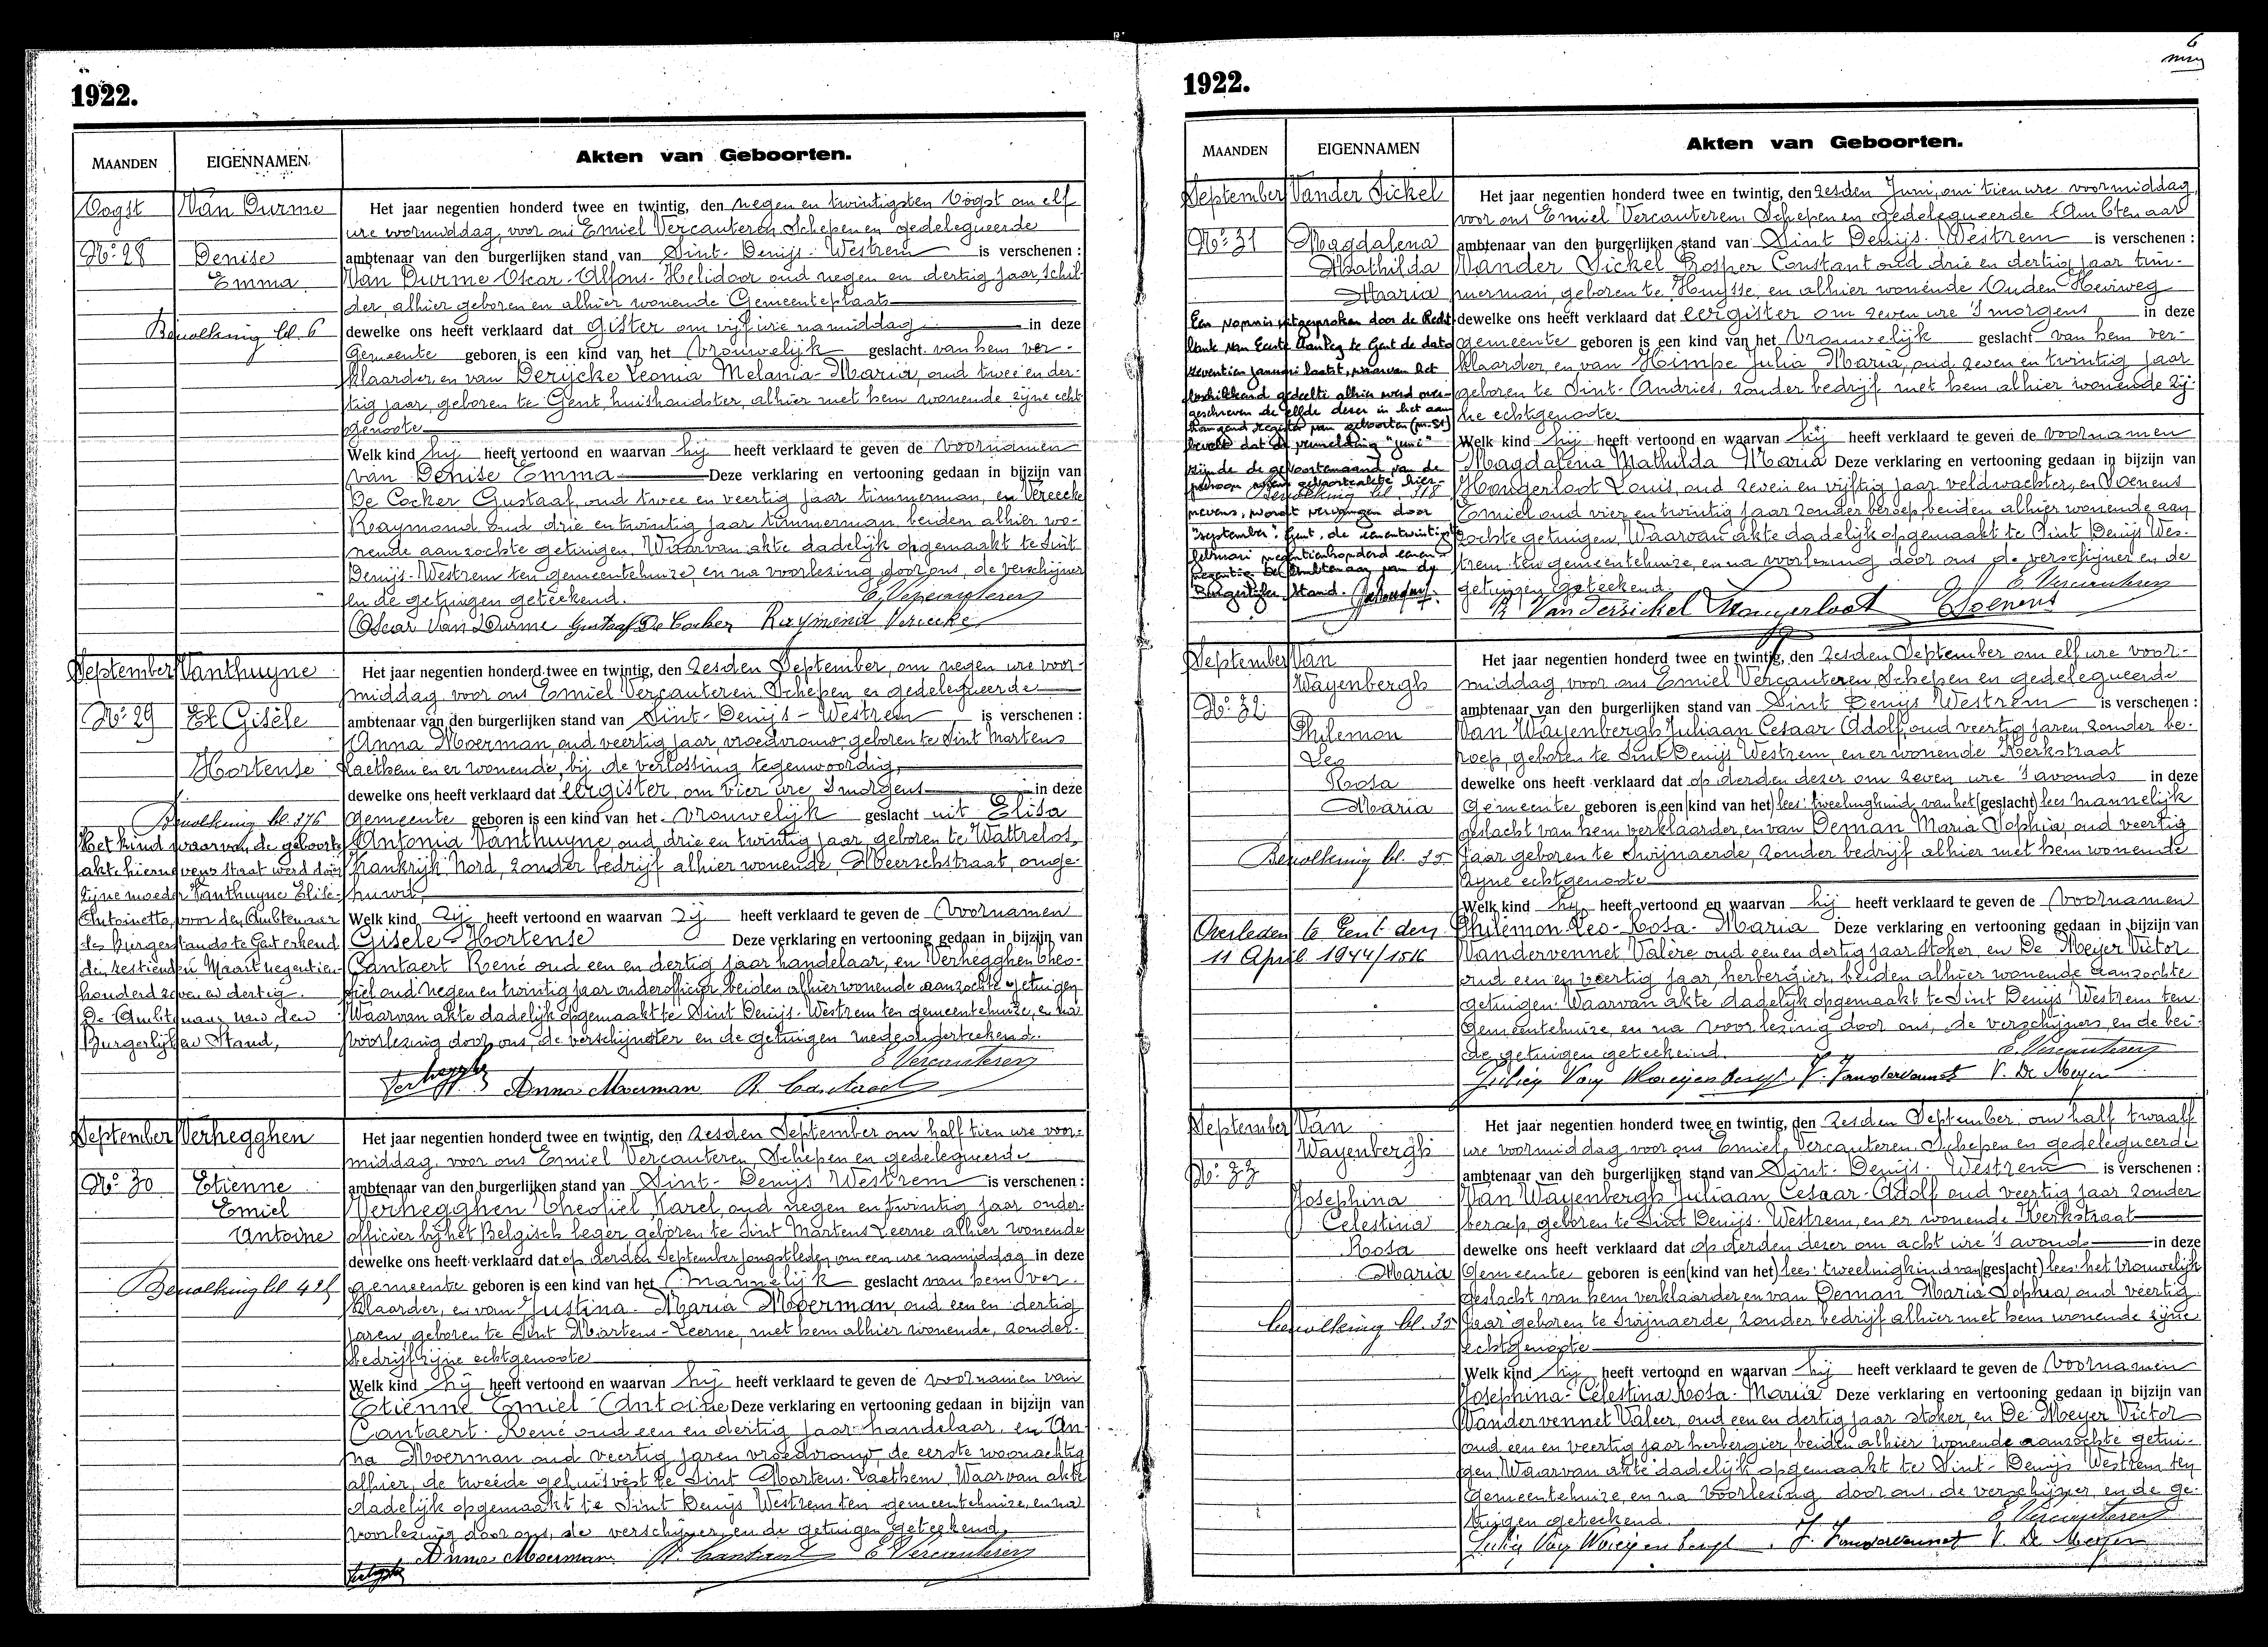 1922.
MAANDEN EIGENNAMEN Akten van Geboorten.
Oogst Van Durme Het jaar negentien honderd twee en twintig, den negen en twintigsten Oogst om elf
ure voormiddag, voor ons Emiel Vercauteren Schepen en gedelegueerde
No: 28 Denise ambtenaar van den burgerlijken stand van Sint-Denijs-Westrem is verschenen :
Emma Van Durme Oscar-Alfons-Helidoor oud negen en dertig jaar, schil-
der, alhier geboren en alhier wonende Gemeenteplaats
Bevolking bl. 6 dewelke ons heeft verklaard dat Gister om vijf ure namiddag in deze
Gemeente geboren is een kind van het Vrouwelijk geslacht van hem ver-
klaarder en van Derijcke Leonia Melania-Maria, oud twee en der-
tig jaar, geboren te Gent, huishoudster, alhier met hem wonende zijne echt-
genoote
Welk kind hij heeft vertoond en waarvan hij heeft verklaard te geven de Voornamen
van Denise Emma Deze verklaring en vertooning gedaan in bijzijn van
De Cocker Gustaaf, oud twee en veertig jaar timmerman, en Vereecke
Raymond oud drie en twintig jaar timmerman, beiden alhier wo-
nende aanzochte getuigen. Waarvan akte dadelijk opgemaakt te Sint
Denijs-Westrem ten gemeentehuize, en na voorlezing door ons, de verschijner
en de getuigen geteekend. E. Vercauteren
Oscar Van Durme Gustaaf De Cocker Raymond Vereecke
September Vanthuyne Het jaar negentien honderd twee en twintig, den zesden September, om negen ure voor-
middag voor ons Emiel Vercauteren Schepen en gedelegueerde
No: 29 Gisèle ambtenaar van den burgerlijken stand van Sint-Denijs-Westrem is verschenen :
Anna Moerman, oud veertig jaar, vroedvrouw geboren te Sint Martens
Hortense Laethem en er wonende, bij de verlossing tegenwoordig,
dewelke ons heeft verklaard dat eergister, om vier ure 's morgens in deze
Bevolking bl. 276 gemeente geboren is een kind van het Vrouwelijk geslacht uit Elisa
Het kind waarvan de geboorte Antonia Vanthuyne, oud drie en twintig jaar, geboren te Wattrelos,
akte hiernevens staat werd door Frankrijk Nord, zonder bedrijf alhier wonende, Meerschstraat, onge-
zijne moeder Vanthuyne Elise- huwd,
Antoinette, voor den Ambtenaar Welk kind zij heeft vertoond en waarvan zij heeft verklaard te geven de Voornamen
des Burgerstands te Gent erkend Gisèle Hortense Deze verklaring en vertooning gedaan in bijzijn van
den zestienden Maart negentien- Cantaert René oud een en dertig jaar handelaar, en Verhegghen Theo-
honderd zeven en dertig. fiel oud negen en twintig jaar onderofficier beiden alhier wonende aanzochte getuigen
De Ambtenaar van den Waarvan akte dadelijk opgemaakt te Sint Denijs-Westrem ten gemeentehuize, en na
Burgerlijken Stand, voorlezing door ons, de verschijnster en de getuigen mede onderteekend.
E. Vercauteren
Verhegghe Anna Moerman R. Cantaert
September Verhegghen Het jaar negentien honderd twee en twintig, den zesden September om half tien ure voor-
middag voor ons Emiel Vercauteren, Schepen en gedelegueerde
No: 30 Etienne ambtenaar van den burgerlijken stand van Sint-Denijs Westrem is verschenen :
Emiel Verhegghen Theofiel Karel, oud negen en twintig jaar onder-
Antoine officier bij het Belgisch leger geboren te Sint Martens Leerne alhier wonende
dewelke ons heeft verklaard dat op derden September jongstleden om een ure namiddag in deze
Bevolking bl. gemeente geboren is een kind van het Mannelijk geslacht van hem ver-
klaarder, en van Justina-Maria Moerman, oud een en dertig
jaren, geboren te Sint Martens-Leerne, met hem alhier wonende, zonder
bedrijf zijne echtgenoote
Welk kind hij heeft vertoond en waarvan hij heeft verklaard te geven de voornamen van
Etienne Emiel Antoine Deze verklaring en vertooning gedaan in bijzijn van
Cantaert-René oud een en dertig jaar handelaar, en An-
na Moerman oud veertig jaren vroedvrouw, de eerste woonachtig
alhier, de tweede gehuisvest te Sint Martens-Laethem. Waarvan akte
dadelijk opgemaakt te Sint Denijs Westrem ten gemeentehuize, en na
voorlezing door ons, de verschijner, en de getuigen geteekend,
Anna Moerman R. Cantaert E. Vercauteren
6
1922.
MAANDEN EIGENNAMEN Akten van Geboorten.
September Vander Sickel Het jaar negentien honderd twee en twintig, den zesden Juni, om tien ure voormiddag,
voor ons Emiel Vercauteren Schepen en gedelegueerde Ambtenaar
No: 31 Magdalena ambtenaar van den burgerlijken stand van Sint Denijs-Westrem is verschenen :
Mathilda Vander Sickel Prosper Constant oud drie en dertig jaar tim-
Maria merman, geboren te Huysse, en alhier wonende Ouden Heirweg
Een vonnis uitgesproken door de Recht- dewelke ons heeft verklaard dat eergister om zeven ure 's morgens in deze
bank van Eerste Aanleg te Gent de dato gemeente geboren is een kind van het Vrouwelijk geslacht van hem ver-
zeventien januari laatst, waarvan het klaarder, en van Himpe Julia Maria, oud zeven en twintig jaar
beschikkend gedeelte alhier werd over- geboren te Sint-Andries, zonder bedrijf met hem alhier wonende zij-
geschreven de elfde dezer in het aan- ne echtgenoote
hangend register van geboorten (nr. 51)
beveelt dat de vermelding "juni" Welk kind hij heeft vertoond en waarvan hij heeft verklaard te geven de voornamen
zijnde de geboortemaand van de Magdalena Mathilda Maria Deze verklaring en vertooning gedaan in bijzijn van
persoon wiens geboorteakte hier- Hongerloot Louis, oud zeven en vijftig jaar veldwachter, en Soenens
Bevolking bl. 118
nevens, wordt vervangen door Emiel oud vier en twintig jaar zonder beroep, beiden alhier wonende aan-
"september". Gent, de eenentwintigste zochte getuigen. Waarvan akte dadelijk opgemaakt te Sint Denijs Wes-
februari negentienhonderd eenen- trem ten gemeentehuize, en na voorlezing door ons de verschijner en de
negentig De Ambtenaar van de getuigen geteekend. E. Vercauteren
Burgerlijke Stand. P. Vandersickel Hongerloot E. Soenens
September Van Het jaar negentien honderd twee en twintig, den zesden September om elf ure voor-
Wayenbergh middag, voor ons Emiel Vercauteren, Schepen en gedelegueerde
No: 32 ambtenaar van den burgerlijken stand van Sint Denijs Westrem is verschenen :
Philemon Van Wayenbergh Juliaan Cesaar Adolf, oud veertig jaren zonder be-
Leo roep, geboren te Sint Denijs Westrem, en er wonende Kerkstraat
Rosa dewelke ons heeft verklaard dat op derden dezer om zeven ure 's avonds in deze
Maria Gemeente geboren is een (kind van het) lees: tweelingkind van het (geslacht) lees mannelijk
geslacht van hem verklaarder, en van Deman Maria Sophia, oud veertig
Bevolking bl. 35 jaar geboren te Swijnaerde, zonder bedrijf alhier met hem wonende
zijne echtgenoote
Welk kind hij heeft vertoond en waarvan hij heeft verklaard te geven de Voornamen
Overleden te Gent den Philémon-Leo-Rosa-Maria Deze verklaring en vertooning gedaan in bijzijn van
11 April 1944/1516 Vandervennet Valère oud een en dertig jaar stoker, en De Meijer Victor
oud een en veertig jaar, herbergier, beiden alhier wonende aanzochte
getuigen. Waarvan akte dadelijk opgemaakt te Sint Denijs Westrem ten
Gemeentehuize, en na voorlezing door ons, de verschijner, en de bei-
de getuigen geteekend. E. Vercauteren
Julien Van Waeyenbergh V. Vandervennet V. De Meyer
September Van Het jaar negentien honderd twee en twintig, den zesden September, om half twaalf
Wayenbergh ure voormiddag voor ons Emiel, Vercauteren Schepen en gedelegueerde
No: 33 ambtenaar van den burgerlijken stand van Sint-Denijs-Westrem is verschenen :
Josephina Van Wayenbergh Juliaan, Cesaar-Adolf oud veertig jaar zonder
Celestina beroep, geboren te Sint Denijs-Westrem, en er wonende Kerkstraat
Rosa dewelke ons heeft verklaard dat op derden dezer om acht ure 's avonds in deze
Maria Gemeente geboren is een (kind van het) lees: tweelingkind van (geslacht) lees: het Vrouwelijk
geslacht van hem verklaarder en van Deman Maria Sophia, oud veertig
bevolking bl. 35 jaar geboren te Swijnaerde, zonder bedrijf alhier met hem wonende zijne
echtgenoote
Welk kind hij heeft vertoond en waarvan hij heeft verklaard te geven de Voornamen
Josephina-Célestina Rosa-Maria Deze verklaring en vertooning gedaan in bijzijn van
Vandervennet Valeer, oud een en dertig jaar stoker, en De Meyer Victor
oud een en veertig jaar herbergier, beiden alhier wonende aanzochte getui-
gen. Waarvan akte dadelijk opgemaakt te Sint-Denijs Westrem ten
Gemeentehuize, en na voorlezing door ons, de verschijner, en de ge-
tuigen geteekend. E. Vercauteren
Julien Van Waeyenbergh V. Vandervennet V. De Meyer